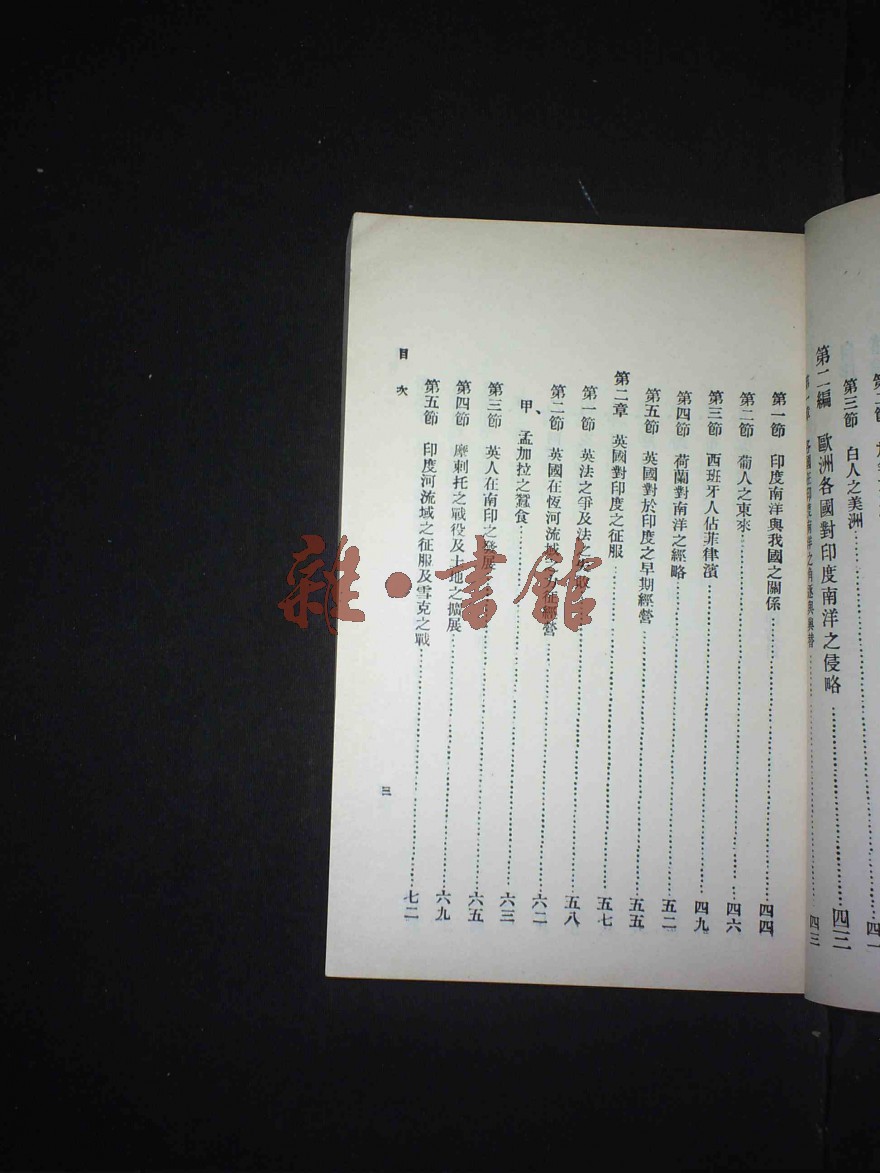 第三節 白人之美洲
第二編 歐洲各國對印度南洋之侵略……四三
各國在印度南洋之角逐與興替……四三
第一節 印度南洋與我國之關係……四四
第二節 葡人之東來……四六
第三節 西班牙人佔菲律濱……四九
第四節 荷蘭對南洋之經略……五二
第五節 英國對於印度之早期經營……五五
第二章 英國對印度之征服……五七
第一節 英法之爭及法之失敗……五八
第二節 英國在恆河流域之經營……六二
甲、孟加拉之蠶食……六三
第三節 英人在南印之發展……六五
第四節 摩剌托之戰役及土地之擴展……六九
第五節 印度河流域之征服及雪克之戰……七二
目次
三
雜·書館